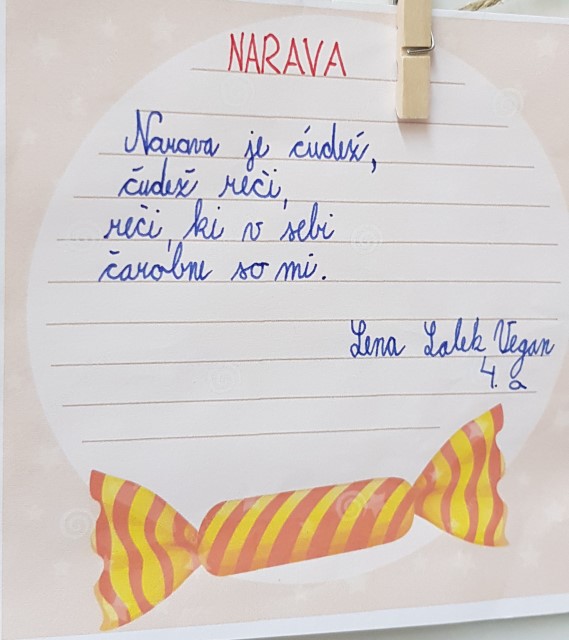 NARAVA
Narava je čudež,
čudež reči,
reči, ki v sebi
čarobne so mi.
Lena Lalek Vegan
4. a